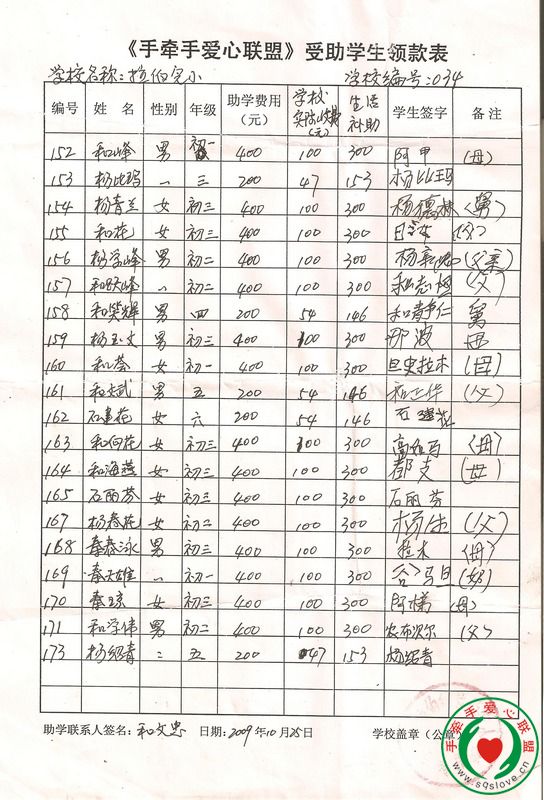 《手牵手爱心联盟》受助学生领款表
学校名称：拉伯完小 学校编号：034
编号 姓 名 性别 年级 助学费用（元） 学校实际收费（元） 生活补助 学生签字 备 注
152 和峰 男 初一 400 100 300 阿甲 （母）
153 杨比玛 〃 三 200 47 153 杨比玛
154 杨青兰 女 初三 400 100 300 杨德林 （舅）
155 和花 女 初三 400 100 300 （父）
156 杨学峰 男 初二 400 100 300 （父亲）
157 和跃峰 〃 初二 400 100 300 （父）
158 和荣辉 男 四 200 54 146 和静仁 舅
159 杨玉文 男 初三 400 100 300 那波 母
160 女 初一 400 100 300 旦史拉木 （母）
161 和文武 男 五 200 54 146 （父）
162 石建花 女 六 200 54 146 石建花
163 和向花 女 初三 400 100 300 （母）
164 和海燕 女 初三 400 100 300 都支 （母）
165 石丽芬 女 初三 400 100 300 石丽芬
167 杨春花 女 初二 400 100 300 （父）
168 秦春泳 男 初三 400 100 300 拉木 （母）
169 秦天雄 〃 初一 400 100 300
170 秦琼 女 初三 400 100 300 （母）
171 和学伟 男 初二 400 100 300 （父）
173 杨绍青 五 200 47 153 杨绍青
助学联系人签名：和文忠 日期：2009年10月25日 学校盖章（公章）
手牵手爱心联盟
www.sqslove.cn